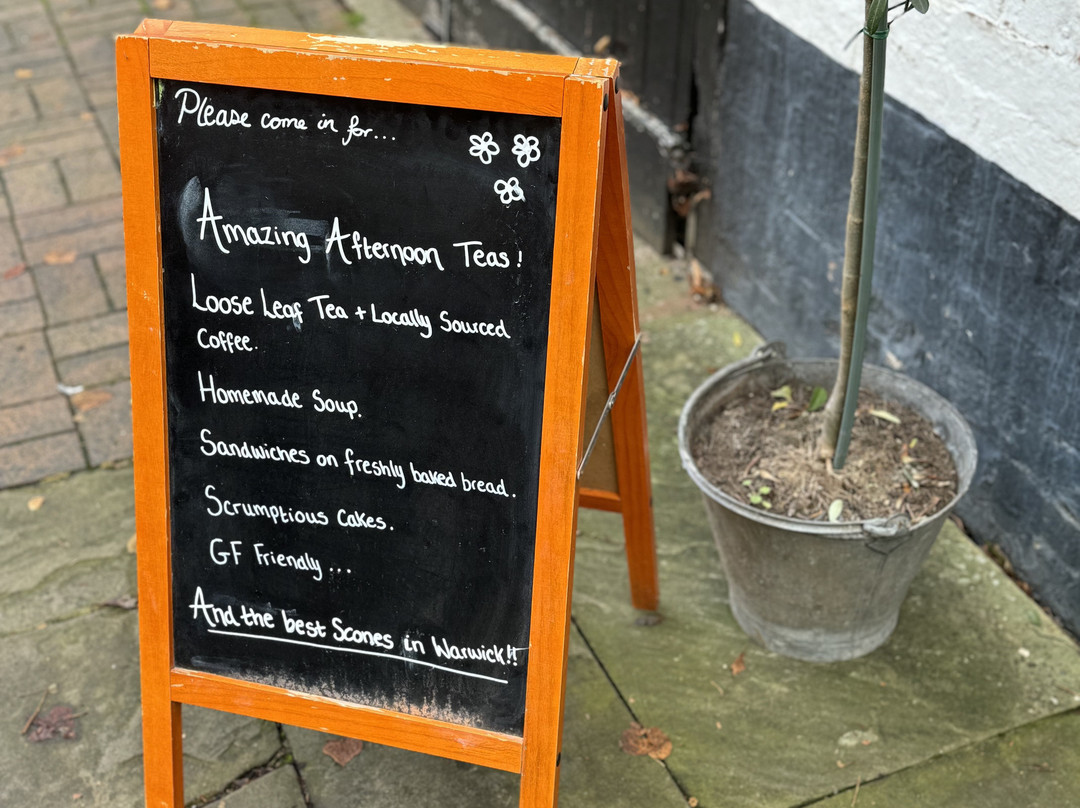 Please come in for...
Amazing Afternoon Teas!
Loose Leaf Tea + Locally Sourced
Coffee.
Homemade Soup.
Sandwiches on freshly baked bread.
Scrumptious Cakes.
GF Friendly...
And the best Scones in Warwick!!